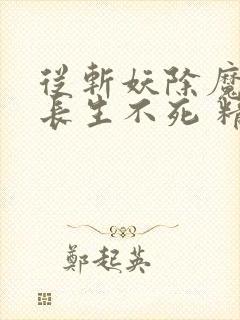 從斬妖除魔
長生不死 精
鄭起英